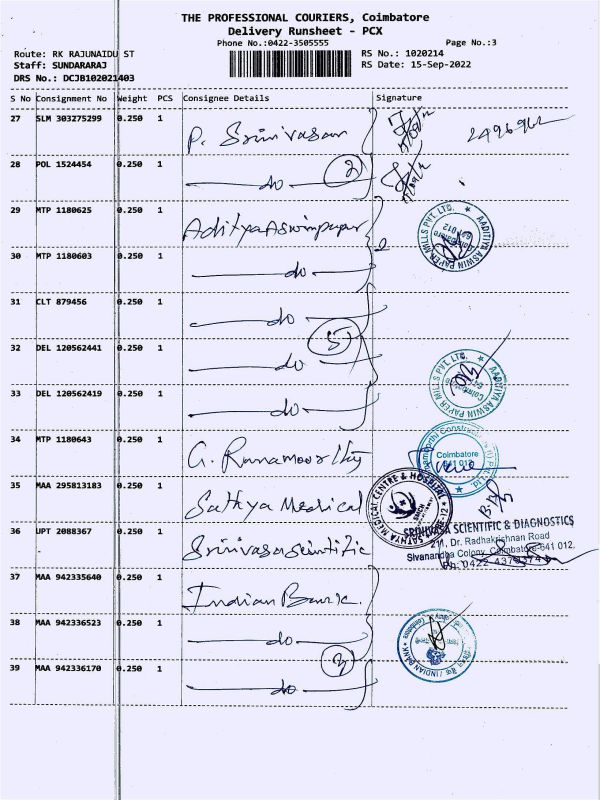 THE PROFESSIONAL COURIERS, Coimbatore
Delivery Runsheet - PCX
Phone No.:0422-3505555
Page No.:3
Route: RK RAJUNAIDU ST
RS No.: 1020214
Staff: SUNDARARAJ
RS Date: 15-Sep-2022
DRS No.: DCJB102021403
S No Consignment No Weight PCS Consignee Details Signature
27 SLM 303275299 0.250 1 P. Srinivasan
28 POL 1524454 0.250 1 do 2
29 MTP 1180625 0.250 1
AADITYA ASWIN PAPER MILLS PVT. LTD.
30 MTP 1180603 0.250 1 do
31 CLT 879456 0.250 1 do
32 DEL 120562441 0.250 1 do 5
AADITYA ASWIN PAPER MILLS PVT. LTD.
33 DEL 120562419 0.250 1 do
34 MTP 1180643 0.250 1 G. Ramamoorthy
Coimbatore
35 MAA 295813183 0.250 1 Sathya Medical
SATHYA MEDICAL CENTRE & HOSPITAL
36 UPT 2088367 0.250 1 Srinivasa Scientific
SRINIVASA SCIENTIFIC & DIAGNOSTICS
211, Dr. Radhakrishnan Road
Sivanandha Colony, Coimbatore-641 012.
37 MAA 942335640 0.250 1 Indian Bank
38 MAA 942336523 0.250 1 do
INDIAN BANK
39 MAA 942336170 0.250 1 do 3